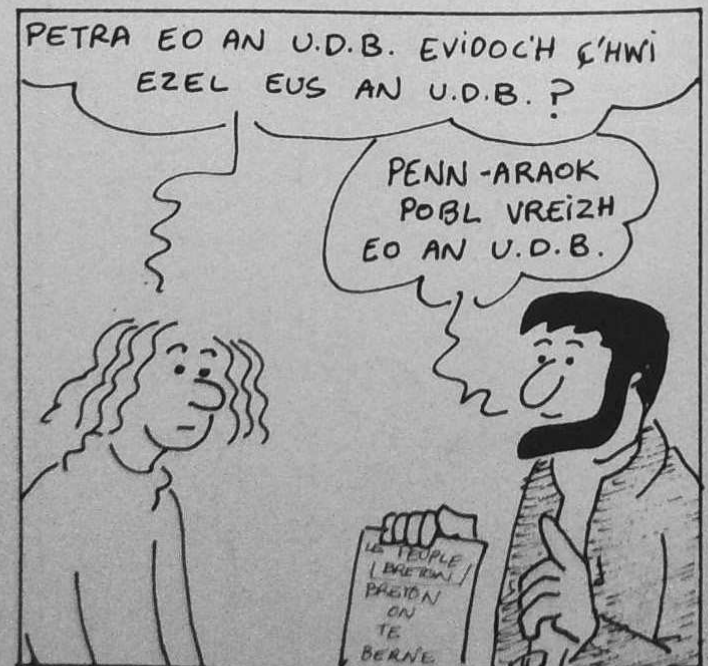 PETRA EO AN U.D.B. EVIDOC'H C'HWI
EZEL EUS AN U.D.B. ?
PENN-ARAOK
POBL VREIZH
EO AN U.D.B.
LE PEUPLE
/BRETON/
BRETON
ON
TE
BERNE